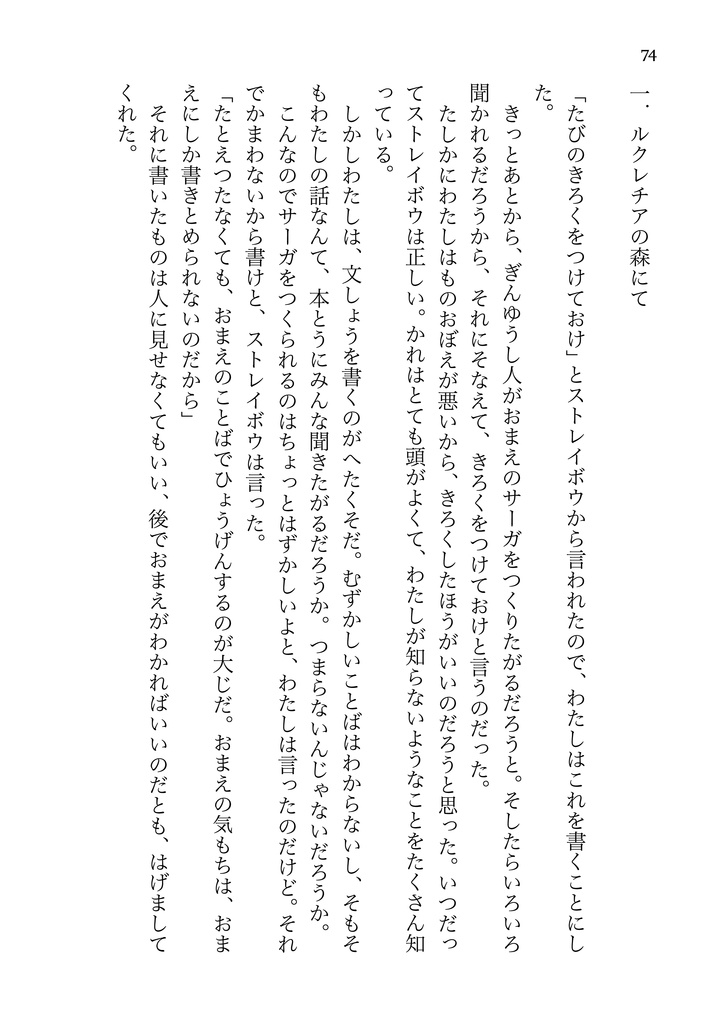 74
一．ルクレチアの森にて
「たびのきろくをつけておけ」とストレイボウから言われたので、わたしはこれを書くことにし
た。
きっとあとから、ぎんゆうし人がおまえのサーガをつくりたがるだろうと。そしたらいろいろ
聞かれるだろうから、それにそなえて、きろくをつけておけと言うのだった。
たしかにわたしはものおぼえが悪いから、きろくしたほうがいいのだろうと思った。いつだっ
てストレイボウは正しい。かれはとても頭がよくて、わたしが知らないようなことをたくさん知
っている。
しかしわたしは、文しょうを書くのがへたくそだ。むずかしいことばはわからないし、そもそ
もわたしの話なんて、本とうにみんな聞きたがるだろうか。つまらないんじゃないだろうか。
こんなのでサーガをつくられるのはちょっとはずかしいよと、わたしは言ったのだけど。それ
でかまわないから書けと、ストレイボウは言った。
「たとえつたなくても、おまえのことばでひょうげんするのが大じだ。おまえの気もちは、おま
えにしか書きとめられないのだから」
それに書いたものは人に見せなくてもいい、後でおまえがわかればいいのだとも、はげまして
くれた。